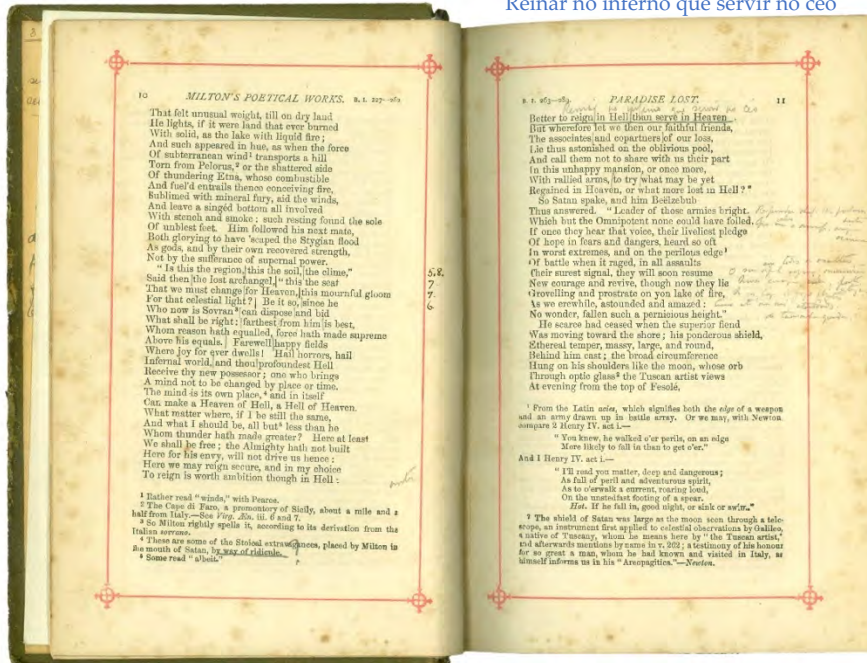 Reinar no inferno que servir no ceo
10 MILTON'S POETICAL WORKS. B. I. 227—262
That felt unusual weight, till on dry land
He lights, if it were land that ever burned
With solid, as the lake with liquid fire;
And such appeared in hue, as when the force
Of subterranean wind¹ transports a hill
Torn from Pelorus,² or the shattered side
Of thundering Etna, whose combustible
And fuel'd entrails thence conceiving fire,
Sublimed with mineral fury, aid the winds,
And leave a singéd bottom all involved
With stench and smoke; such resting found the sole
Of unblest feet. Him followed his next mate,
Both glorying to have 'scaped the Stygian flood
As gods, and by their own recovered strength,
Not by the sufferance of supernal power.
"Is this the region, this the soil, the clime,"
Said then the lost archangel, "this the seat
That we must change for Heaven, this mournful gloom
For that celestial light? Be it so, since he
Who now is Sovran³ can dispose and bid
What shall be right: farthest from him is best,
Whom reason hath equalled, force hath made supreme
Above his equals. Farewell happy fields
Where joy for ever dwells! Hail horrors, hail
Infernal world, and thou profoundest Hell
Receive thy new possessor; one who brings
A mind not to be changed by place or time.
The mind is its own place,⁴ and in itself
Can make a Heaven of Hell, a Hell of Heaven.
What matter where, if I be still the same,
And what I should be, all but⁵ less than he
Whom thunder hath made greater? Here at least
We shall be free; the Almighty hath not built
Here for his envy, will not drive us hence:
Here we may reign secure, and in my choice
To reign is worth ambition though in Hell:
5.8.
7
7.
6
¹ Rather read "winds," with Pearce.
² The Cape di Faro, a promontory of Sicily, about a mile and a
half from Italy.—See Virg. Æn. iii. 6 and 7.
³ So Milton rightly spells it, according to its derivation from the
Italian sovrano.
⁴ These are some of the Stoical extravagances, placed by Milton in
the mouth of Satan, by way of ridicule.
⁵ Some read "albeit."
B. I. 263—289. PARADISE LOST. 11
Better to reign in Hell than serve in Heaven.
But wherefore let we then our faithful friends,
The associates and copartners of our loss,
Lie thus astonished on the oblivious pool,
And call them not to share with us their part
In this unhappy mansion, or once more,
With rallied arms, to try what may be yet
Regained in Heaven, or what more lost in Hell?"
So Satan spake, and him Beëlzebub
Thus answered. "Leader of those armies bright.
Which but the Omnipotent none could have foiled,
If once they hear that voice, their liveliest pledge
Of hope in fears and dangers, heard so oft
In worst extremes, and on the perilous edge¹
Of battle when it raged, in all assaults
Their surest signal, they will soon resume
New courage and revive, though now they lie
Grovelling and prostrate on yon lake of fire,
As we erewhile, astounded and amazed:
No wonder, fallen such a pernicious height."
He scarce had ceased when the superior fiend
Was moving toward the shore; his ponderous shield,
Ethereal temper, massy, large, and round,
Behind him cast; the broad circumference
Hung on his shoulders like the moon, whose orb
Through optic glass² the Tuscan artist views
At evening from the top of Fesolé,
¹ From the Latin acies, which signifies both the edge of a weapon
and an army drawn up in battle array. Or we may, with Newton
compare 2 Henry IV. act i.—
"You knew, he walked o'er perils, on an edge
More likely to fall in than to get o'er."
And 1 Henry IV. act i.—
"I'll read you matter, deep and dangerous;
As full of peril and adventurous spirit,
As to o'erwalk a current, roaring loud,
On the unstedfast footing of a spear.
Hot. If he fall in, good night, or sink or swim."
² The shield of Satan was large as the moon seen through a tele-
scope, an instrument first applied to celestial observations by Galileo,
a native of Tuscany, whom he means here by "the Tuscan artist,"
and afterwards mentions by name in v. 262; a testimony of his honour
for so great a man, whom he had known and visited in Italy, as
himself informs us in his "Areopagitica."—Newton.